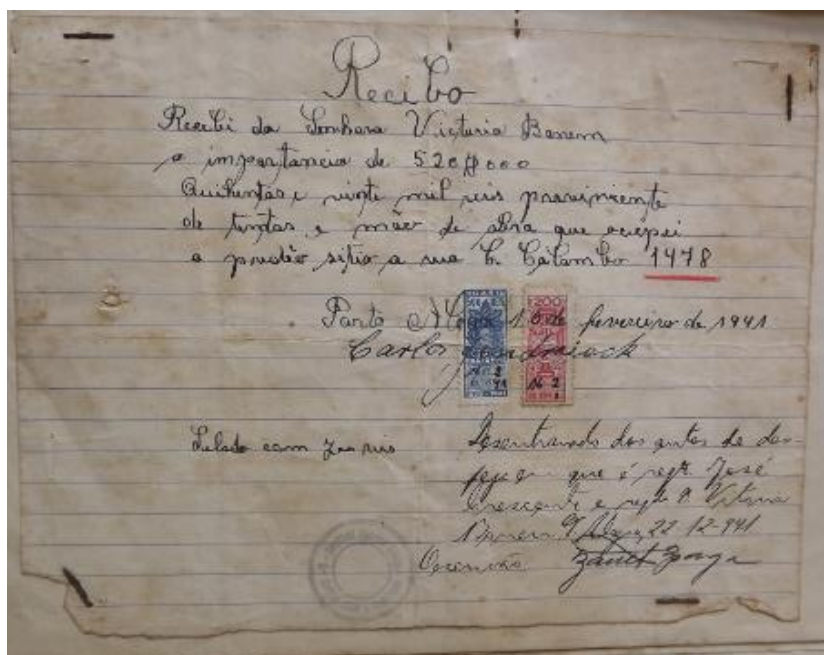 Recibo
Recibi da Senhora Victoria Barem
a importancia de 520$000
Quinhentos e vinte mil reis proviniente
de tintas e mão de obra que ocupei
o predio sitio a rua C. Colombo 1478
Porto Alegre 16 de fevereiro de 1941
Carlos
200
16 2
Selado com reis
Desentranhado dos autos de des-
pejo em que é reqte José
e reqda D. Vitoria
P. Alegre, 22-12-941
Escrivão